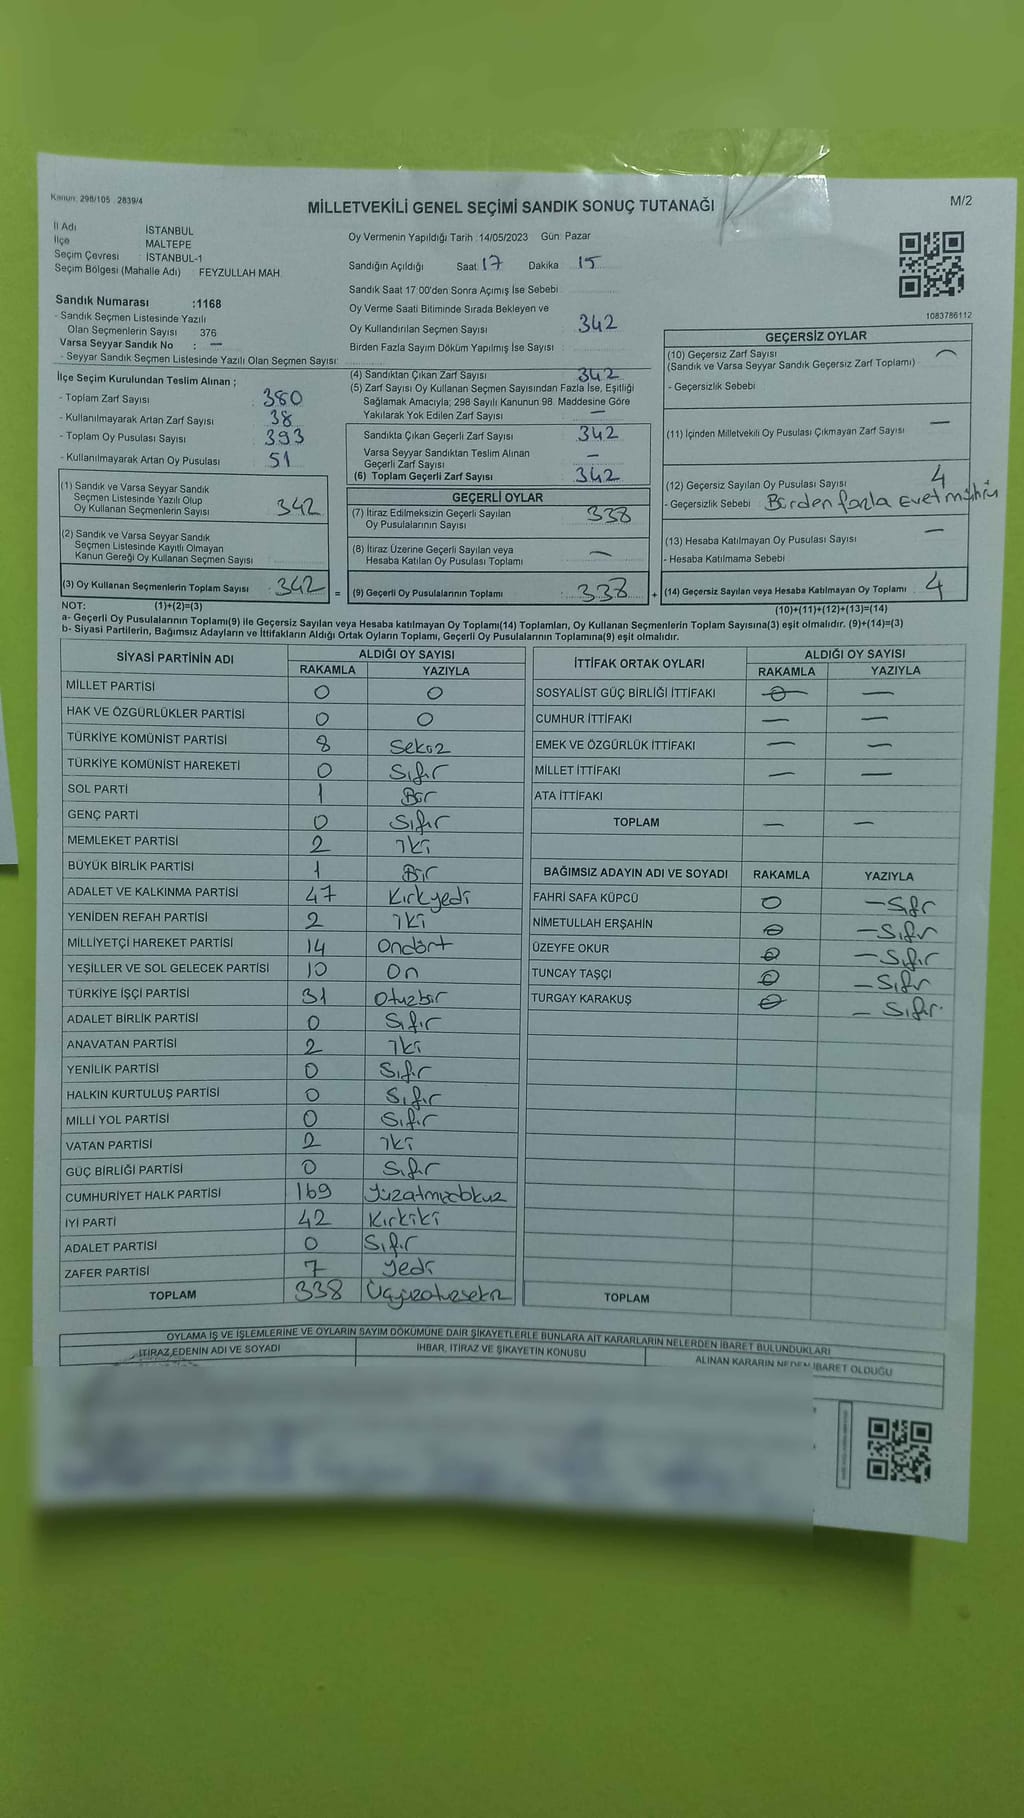 Kanun: 298/105 2839/4
MİLLETVEKİLİ GENEL SEÇİMİ SANDIK SONUÇ TUTANAĞI
M/2
İl Adı : İSTANBUL
İlçe : MALTEPE
Seçim Çevresi : İSTANBUL-1
Seçim Bölgesi (Mahalle Adı) : FEYZULLAH MAH.
Oy Vermenin Yapıldığı Tarih :14/05/2023 Gün: Pazar
Sandığın Açıldığı Saat: 17 Dakika: 15
Sandık Saat 17:00'den Sonra Açımış İse Sebebi:
Oy Verme Saati Bitiminde Sırada Bekleyen ve
Oy Kullandırılan Seçmen Sayısı : 342
Birden Fazla Sayım Döküm Yapılmış İse Sayısı :
1083786112
Sandık Numarası :1168
- Sandık Seçmen Listesinde Yazılı
Olan Seçmenlerin Sayısı : 376
Varsa Seyyar Sandık No : —
- Seyyar Sandık Seçmen Listesinde Yazılı Olan Seçmen Sayısı:
İlçe Seçim Kurulundan Teslim Alınan ;
- Toplam Zarf Sayısı : 380
- Kullanılmayarak Artan Zarf Sayısı : 38
- Toplam Oy Pusulası Sayısı : 393
- Kullanılmayarak Artan Oy Pusulası : 51
(1) Sandık ve Varsa Seyyar Sandık
Seçmen Listesinde Yazılı Olup
Oy Kullanan Seçmenlerin Sayısı : 342
(2) Sandık ve Varsa Seyyar Sandık
Seçmen Listesinde Kayıtlı Olmayan
Kanun Gereği Oy Kullanan Seçmen Sayısı :
(3) Oy Kullanan Seçmenlerin Toplam Sayısı : 342 =
(4) Sandıktan Çıkan Zarf Sayısı : 342
(5) Zarf Sayısı Oy Kullanan Seçmen Sayısından Fazla İse, Eşitliği
Sağlamak Amacıyla; 298 Sayılı Kanunun 98. Maddesine Göre
Yakılarak Yok Edilen Zarf Sayısı : —
Sandıkta Çıkan Geçerli Zarf Sayısı : 342
Varsa Seyyar Sandıktan Teslim Alınan
Geçerli Zarf Sayısı : —
(6) Toplam Geçerli Zarf Sayısı : 342
GEÇERLİ OYLAR
(7) İtiraz Edilmeksizin Geçerli Sayılan
Oy Pusulalarının Sayısı : 338
(8) İtiraz Üzerine Geçerli Sayılan veya
Hesaba Katılan Oy Pusulası Toplamı : —
(9) Geçerli Oy Pusulalarının Toplamı : 338 +
GEÇERSİZ OYLAR
(10) Geçersiz Zarf Sayısı : —
(Sandık ve Varsa Seyyar Sandık Geçersiz Zarf Toplamı)
- Geçersizlik Sebebi :
(11) İçinden Milletvekili Oy Pusulası Çıkmayan Zarf Sayısı : —
(12) Geçersiz Sayılan Oy Pusulası Sayısı : 4
- Geçersizlik Sebebi : Birden fazla Evet mührü
(13) Hesaba Katılmayan Oy Pusulası Sayısı : —
- Hesaba Katılmama Sebebi :
(14) Geçersiz Sayılan veya Hesaba Katılmayan Oy Toplamı : 4
NOT: (1)+(2)=(3) (10)+(11)+(12)+(13)=(14)
a- Geçerli Oy Pusulalarının Toplamı(9) ile Geçersiz Sayılan veya Hesaba katılmayan Oy Toplamı(14) Toplamları, Oy Kullanan Seçmenlerin Toplam Sayısına(3) eşit olmalıdır. (9)+(14)=(3)
b- Siyasi Partilerin, Bağımsız Adayların ve İttifakların Aldığı Ortak Oyların Toplamı, Geçerli Oy Pusulalarının Toplamına(9) eşit olmalıdır.
SİYASİ PARTİNİN ADI ALDIĞI OY SAYISI
RAKAMLA YAZIYLA
MİLLET PARTİSİ 0 0
HAK VE ÖZGÜRLÜKLER PARTİSİ 0 0
TÜRKİYE KOMÜNİST PARTİSİ 8 Sekiz
TÜRKİYE KOMÜNİST HAREKETİ 0 Sıfır
SOL PARTİ 1 Bir
GENÇ PARTİ 0 Sıfır
MEMLEKET PARTİSİ 2 İki
BÜYÜK BİRLİK PARTİSİ 1 Bir
ADALET VE KALKINMA PARTİSİ 47 Kırkyedi
YENİDEN REFAH PARTİSİ 2 İki
MİLLİYETÇİ HAREKET PARTİSİ 14 Ondört
YEŞİLLER VE SOL GELECEK PARTİSİ 10 On
TÜRKİYE İŞÇİ PARTİSİ 31 Otuzbir
ADALET BİRLİK PARTİSİ 0 Sıfır
ANAVATAN PARTİSİ 2 İki
YENİLİK PARTİSİ 0 Sıfır
HALKIN KURTULUŞ PARTİSİ 0 Sıfır
MİLLİ YOL PARTİSİ 0 Sıfır
VATAN PARTİSİ 2 İki
GÜÇ BİRLİĞİ PARTİSİ 0 Sıfır
CUMHURİYET HALK PARTİSİ 169 Yüzatmışdokuz
İYİ PARTİ 42 Kırkiki
ADALET PARTİSİ 0 Sıfır
ZAFER PARTİSİ 7 Yedi
TOPLAM 338 Üçyüzotuzsekiz
İTTİFAK ORTAK OYLARI ALDIĞI OY SAYISI
RAKAMLA YAZIYLA
SOSYALİST GÜÇ BİRLİĞİ İTTİFAKI — —
CUMHUR İTTİFAKI — —
EMEK VE ÖZGÜRLÜK İTTİFAKI — —
MİLLET İTTİFAKI — —
ATA İTTİFAKI
TOPLAM — —
BAĞIMSIZ ADAYIN ADI VE SOYADI RAKAMLA YAZIYLA
FAHRİ SAFA KÜPCÜ 0 — Sıfır
NİMETULLAH ERŞAHİN 0 — Sıfır
ÜZEYFE OKUR 0 — Sıfır
TUNCAY TAŞÇI 0 — Sıfır
TURGAY KARAKUŞ 0 — Sıfır
TOPLAM
OYLAMA İŞ VE İŞLEMLERİNE VE OYLARIN SAYIM DÖKÜMÜNE DAİR ŞİKAYETLERLE BUNLARA AİT KARARLARIN NELERDEN İBARET BULUNDUKLARI
İTİRAZ EDENİN ADI VE SOYADI İHBAR, İTİRAZ VE ŞİKAYETİN KONUSU ALINAN KARARIN NEDEN İBARET OLDUĞU